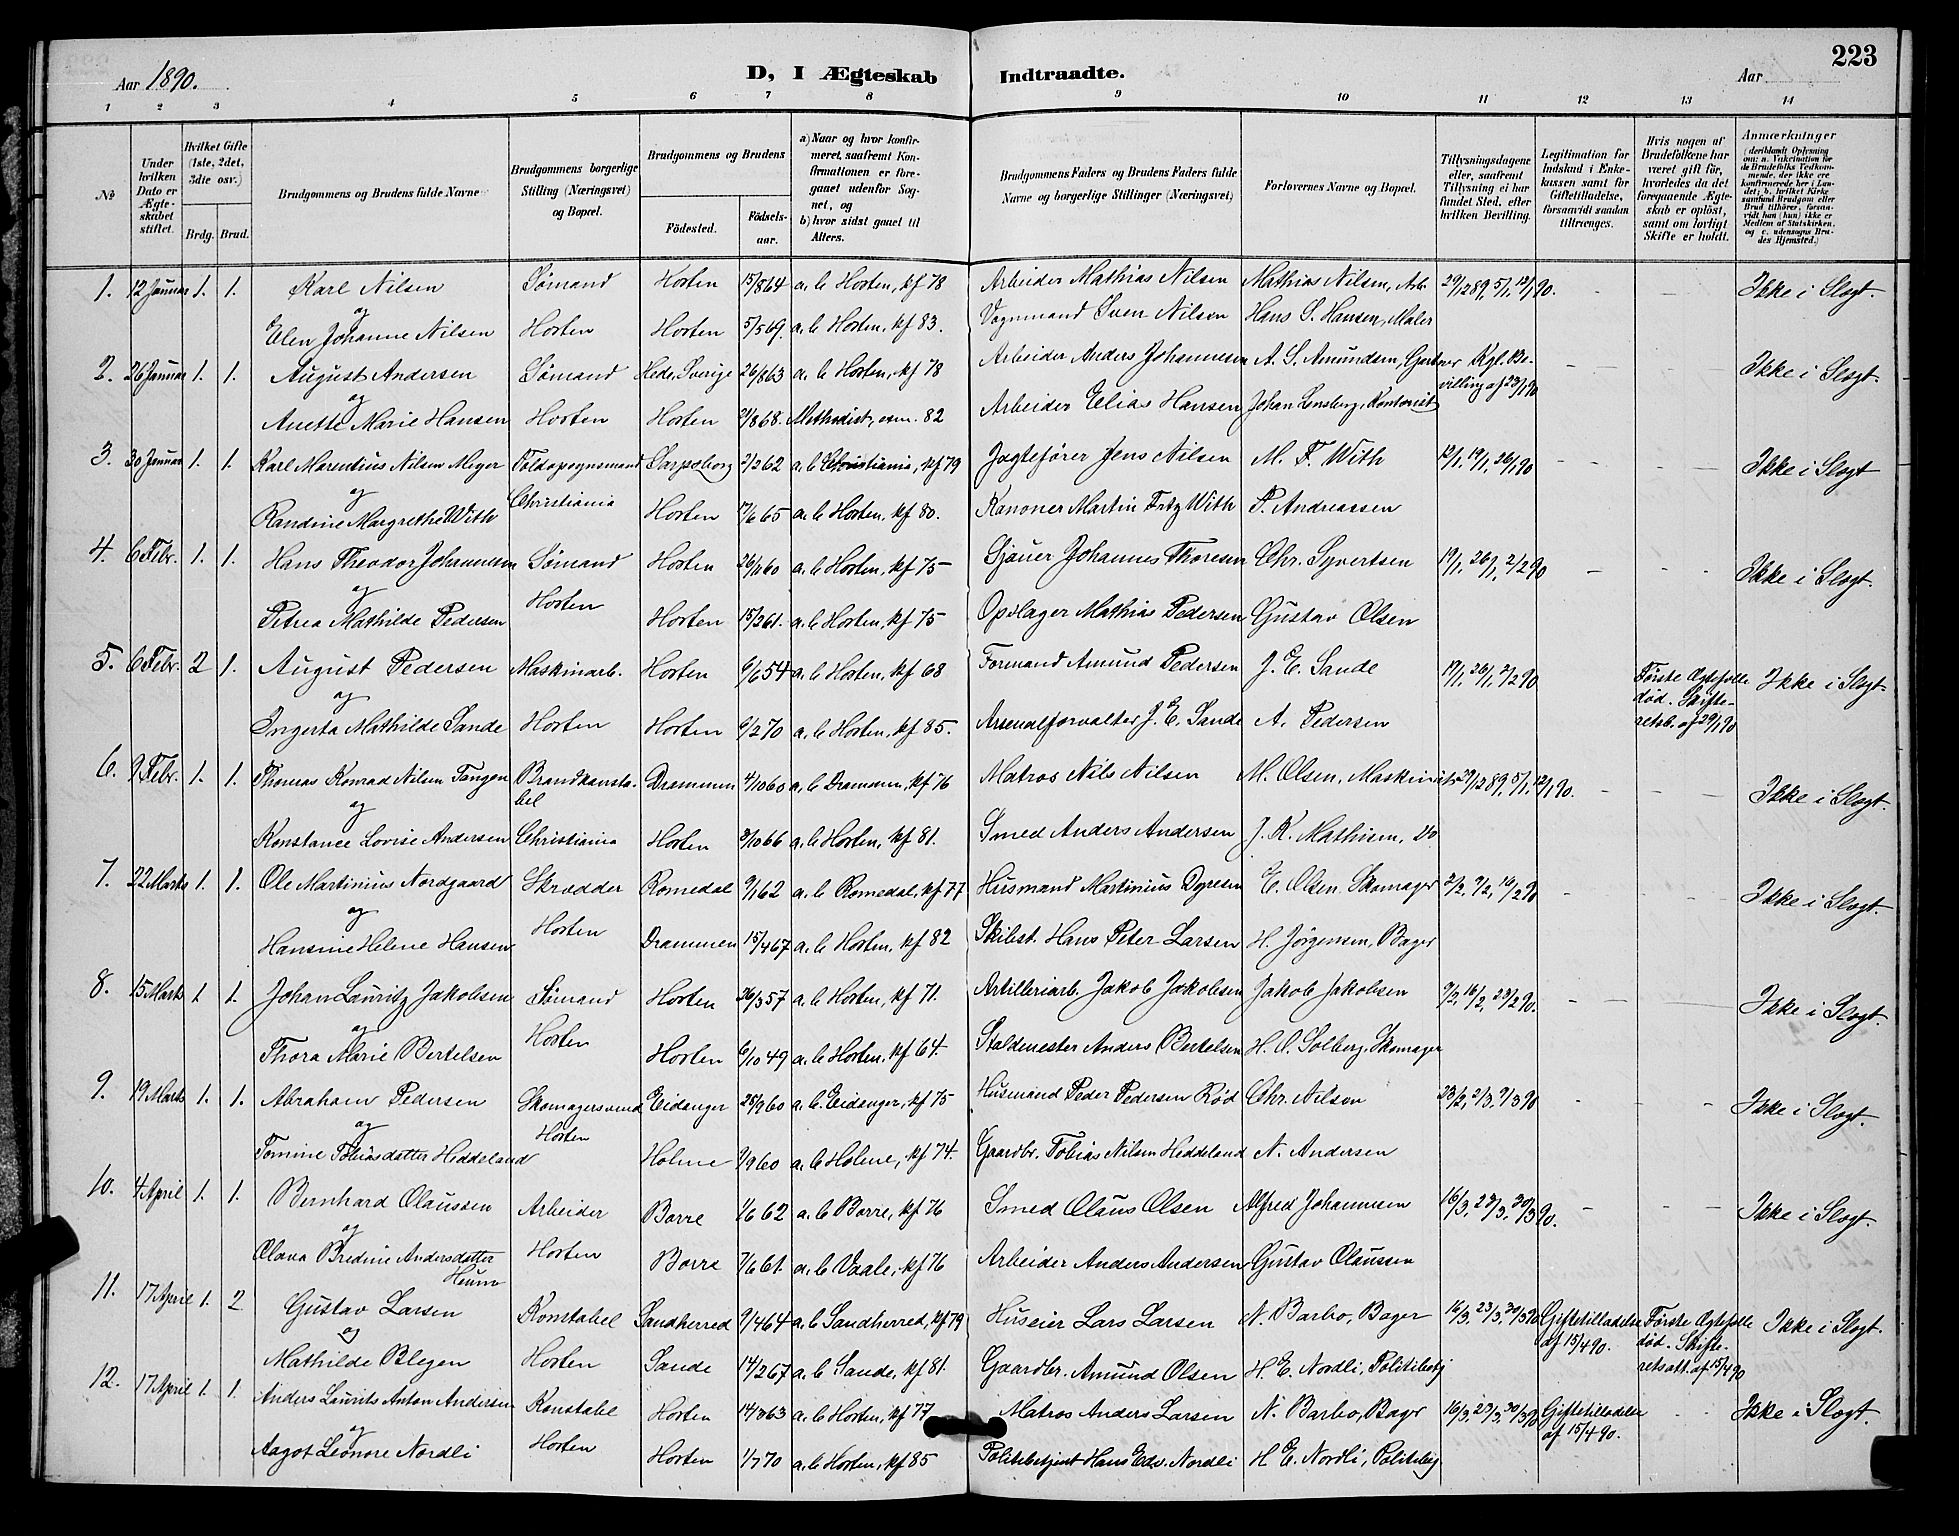 223
Aar 1890.
D, I Ægteskab Indtraadte.
Aar
1 2 3 4 5 6 7 8 9 10 11 12 13 14
№
Under hvilken Dato er Ægteskabet stiftet.
Hvilket Gifte (1ste, 2det, 3die osv.)
Brdg. Brud.
Brudgommens og Brudens fulde Navne
Brudgommens borgerlige Stilling (Næringsvei) og Bopæl.
Brudgommens og Brudens
Fødested.
Fødselsaar.
a) Naar og hvor konfirmeret, saafremt Konfirmationen er foregaaet udenfor Sognet, og
b) hvor sidst gaaet til Alters.
Brudgommens Faders og Brudens Faders fulde Navne og borgerlige Stillinger (Næringsvei)
Forlovernes Navne og Bopæl.
Tillysningsdagene eller, saafremt Tillysning ei har fundet Sted, efter hvilken Bevilling.
Legitimation for Indskud i Enkekassen samt for Giftetilladelse, forsaavidt saadan tiltrænges.
Hvis nogen af Brudefolkene har været gift før, hvorledes da det foregaaende Ægteskab er opløst, samt om lovligt Skifte er holdt.
Anmærkninger (deriblandt Oplysning om: a. Vakcination for de Brudefolks Vedkommende, der ikke ere konfirmerede her i Landet; b. hvilket Kirkesamfund Brudgom eller Brud tilhører, forsaavidt han (hun) ikke er Medlem af Statskirken, og c. udensogns Brudes Hjemsted.)
1. 12 Januar 1. 1. Karl Nilsen Sømand Horten 15/8 64 a. b Horten, kf 78 Arbeider Mathias Nilsen Mathias Nilsen, Arb. 29/12 89, 5/1, 12/1 90. - - - Ikke i Slægt.
og
Elen Johanne Nilsen Horten Horten 5/5 69. a. b Horten, kf 83. Vognmand Sven Nilsen Hans S. Hansen, Maler
2. 26 Januar 1. 1. August Andersen Sømand Hede, Sverige 26/8 63 a. b Horten, kf 78 Arbeider Anders Johannesen A. S. Amundsen, Gartner Kgl. Bevilling af 23/1 90 - - - Ikke i Slægt.
og
Anette Marie Hansen Horten Horten 21/8 68. Methodist, 82 Arbeider Elias Hansen Johan Lensberg, Kontorist
3. 30 Januar 1. 1. Karl Marentius Nilsen Meyer Toldopsynsmand Sarpsborg 2/2 62 a. b Christiania, kf 79 Jagtefører Jens Nilsen M. F. With 12/1, 19/1, 26/1 90 - - - Ikke i Slægt
og Christiania
Randine Margrethe With Horten 17/6 65 a. b Horten, kf 80. Kanoner Martin Fritz With P. Andreassen
4. 6 Febr. 1. 1. Hans Theodor Johannesen Sømand Horten 26/11 60 a. b Horten, kf 75 Sjauer Johannes Thoresen Chr. Syvertsen 19/1, 26/1, 2/2 90 - - - Ikke i Slægt.
og Horten
Petrea Mathilde Pedersen Horten 15/2 61. a. b Horten, kf 75 Opslager Mathias Pedersen Gustav Olsen
5. 6 Febr. 2 1. August Pedersen Maskinarb. Horten 6/6 54 a. b Horten, kf 68 Formand Amund Pedersen J. E. Sande 19/1, 26/1, 2/2 90 Første Ægtefælle død. Skifteretsb. af 29/1 90 Ikke i Slægt
og
Ingerta Mathilde Sande Horten Horten 6/2 70 a. b Horten, kf 85. Arsenalforvalter J. E. Sande A. Pedersen
6. 9 Febr. 1. 1. Thomas Konrad Nilsen Tangen Brandkonstabel Drammen 4/10 60 a. b Drammen, kf 76 Matros Nils Nilsen M. Olsen, Maskinist 29/12 89, 5/1, 12/1 90. - - - Ikke i Slægt.
og
Konstance Lovise Andersen Christiania Horten 3/10 66 a. b Horten, kf 81. Smed Anders Andersen J. K. Mathisen, Do
7. 22 Marts 1. 1. Ole Martinius Nordgaard Skrædder Romedal 9/1 62 a. b Romedal, kf 77 Husmand Martinius Dyresen E. Olsen, Skomager 2/2, 9/2, 16/2 90 - - - Ikke i Slægt.
og Horten
Hansine Helene Hansen Drammen 15/4 67 a. b Horten, kf 82 Skibst. Hans Peter Larsen H. Jørgensen, Bager
8. 15 Marts 1 1. Johan Lauritz Jakobsen Sømand Horten 26/3 57 a. b Horten, kf 71. Artilleriarb. Jakob Jakobsen Jakob Jakobsen 9/2, 16/2, 23/2 90. - - - Ikke i Slægt.
og Horten
Thora Marie Bertelsen Horten 6/10 49 a. b Horten, kf 64. Staldmester Anders Bertelsen H. O. Solberg, Skomager
9. 19 Marts 1. 1. Abraham Pedersen Skomagersvend Eidanger 25/9 60 a. b. Eidanger, kf 75 Husmand Peder Pedersen Rød Chr. Nilsen 23/2, 2/3, 9/3 90 - - - Ikke i Slægt.
og Horten
Tomine Tobiasdatter Heddeland Holme 1/9 60 a. b Holme, kf 74. Gaardbr. Tobias Nilsen Heddeland N. Andersen
10. 4 April 1. 1. Bernhard Olaussen Arbeider Borre 1/6 62 a. b Borre, kf 76 Smed Olaus Olsen Alfred Johannesen 16/3, 23/3, 30/3 90. - - - Ikke i Slægt.
og
Olava Bredine Andersdatter Horten Borre 7/6 61. a. b Vaale, kf 76 Arbeider Anders Andersen Gustav Olaussen
11. 17 April 1. 2 Gustav Larsen Konstabel Sandherred 9/4 64 a. b Sandherred, kf 79 Huseier Lars Larsen N. Barbo, Bager 16/3, 23/3, 30/3 90 Giftetilladelse af 15/4 90. Første Ægtefælle død. Skifteretsatt. af 15/4 90 Ikke i Slægt.
og
Mathilde Blegen Horten Sande 14/2 67 a. b Sande, kf 81. Gaardbr. Amund Olsen H. E. Nordli, Politibetj
12. 17 April 1. 1. Anders Laurits Anton Andersen Konstabel Horten 14/3 63 a. b Horten, kf 77 Matros Anders Larsen N. Barbo, Bager 16/3, 23/3, 30/3 90 Giftetilladelse af 15/4 90. - - Ikke i Slægt.
og
Aagot Leonore Nordli Horten Horten 1/7 70 a. b Horten, kf 85 Politibetjent Hans Edv. Nordli H E. Nordli, Politibtj